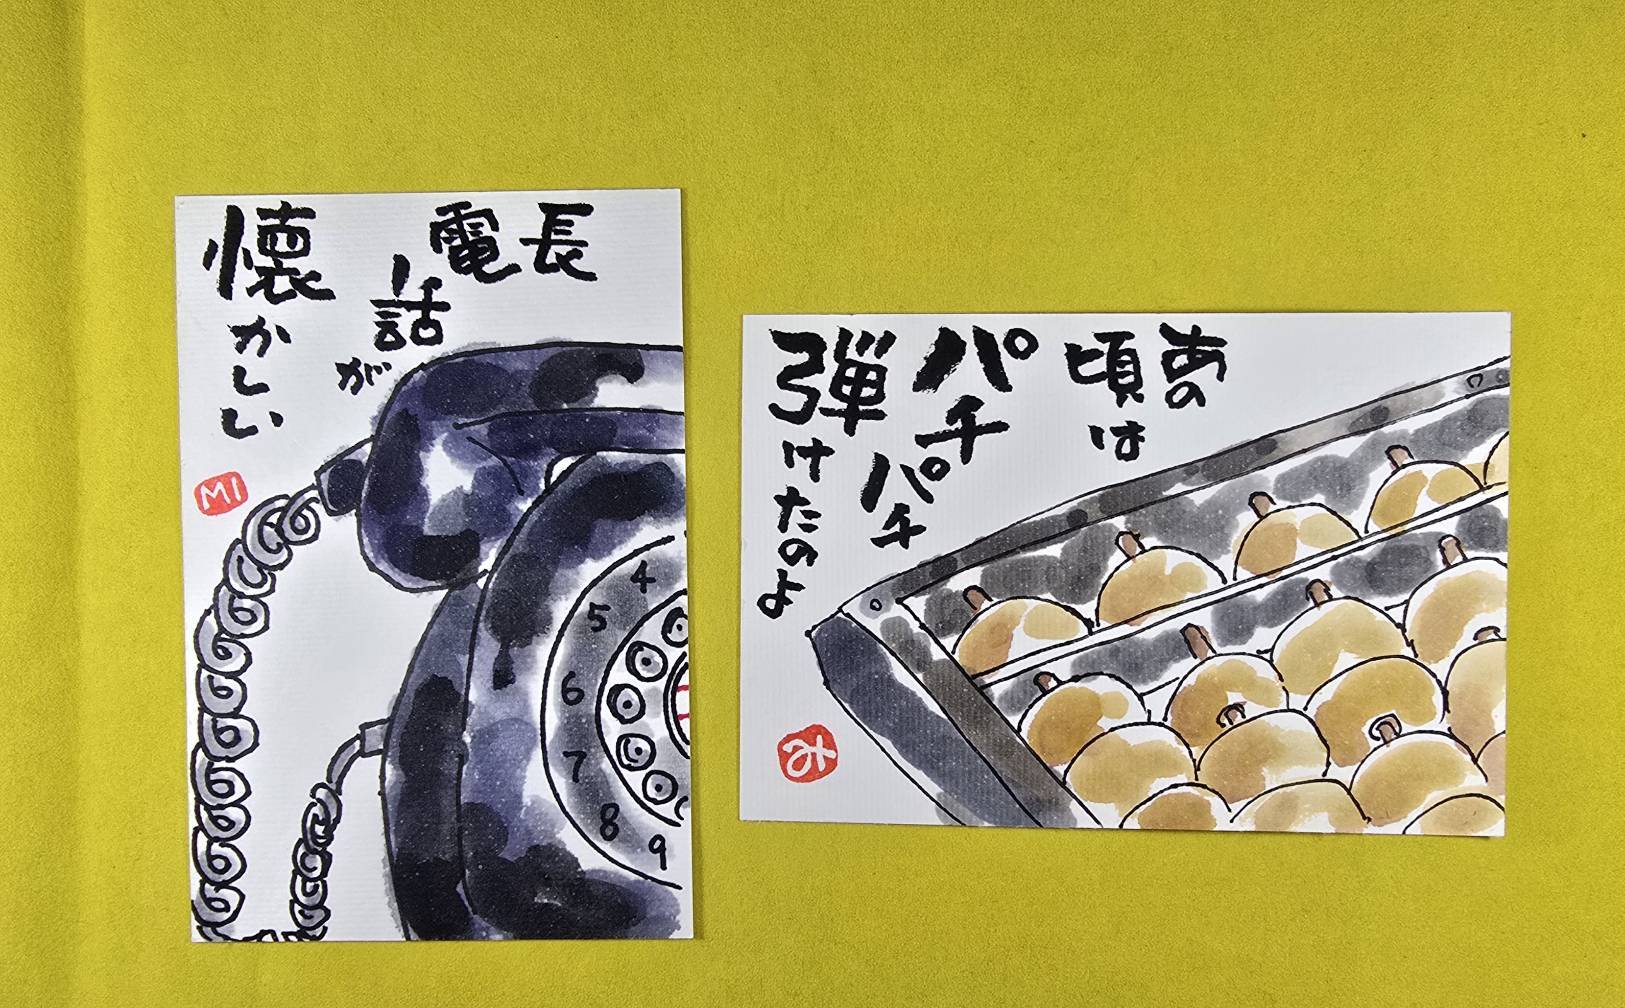 長
電
話
が
懐かしい
MI
4
5
6
7
8
9
あの
頃は
パチ
パチ
弾けたのよ
み